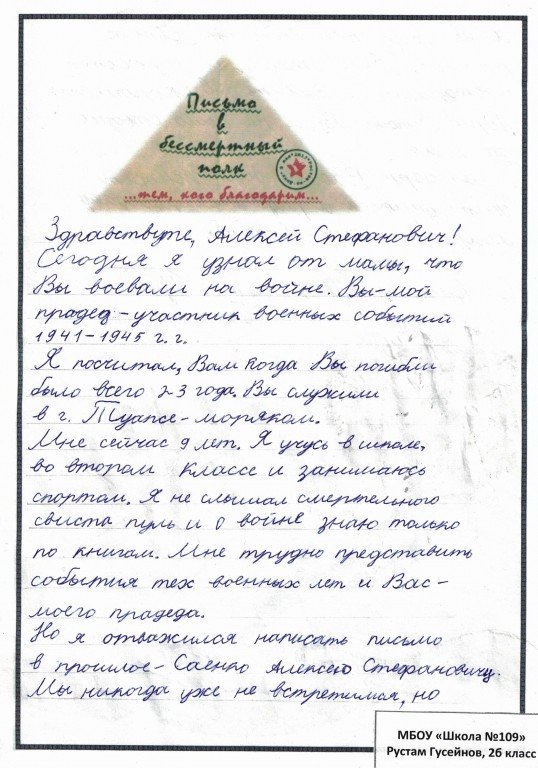 Письмо
в
бессмертный
полк
...тем, кого благодарим...
Здравствуте, Алексей Стефанович!
Сегодня я узнал от мамы, что
Вы воевали на войне. Вы-мой
прадед-участник военных событий
1941-1945 г.г.
Я посчитал, Вам когда Вы погибли
было всего 23 года. Вы служили
в г. Туапсе-моряком.
Мне сейчас 9 лет. Я учусь в школе,
во втором классе и занимаюсь
спортом. Я не слышал смертельного
свиста пуль и о войне знаю только
по книгам. Мне трудно представить
события тех военных лет и Вас-
моего прадеда.
Но я отважился написать письмо
в прошлое-Саенко Алексею Стефановичу.
Мы никогда уже не встретимся, но
МБОУ «Школа №109»
Рустам Гусейнов, 2б класс